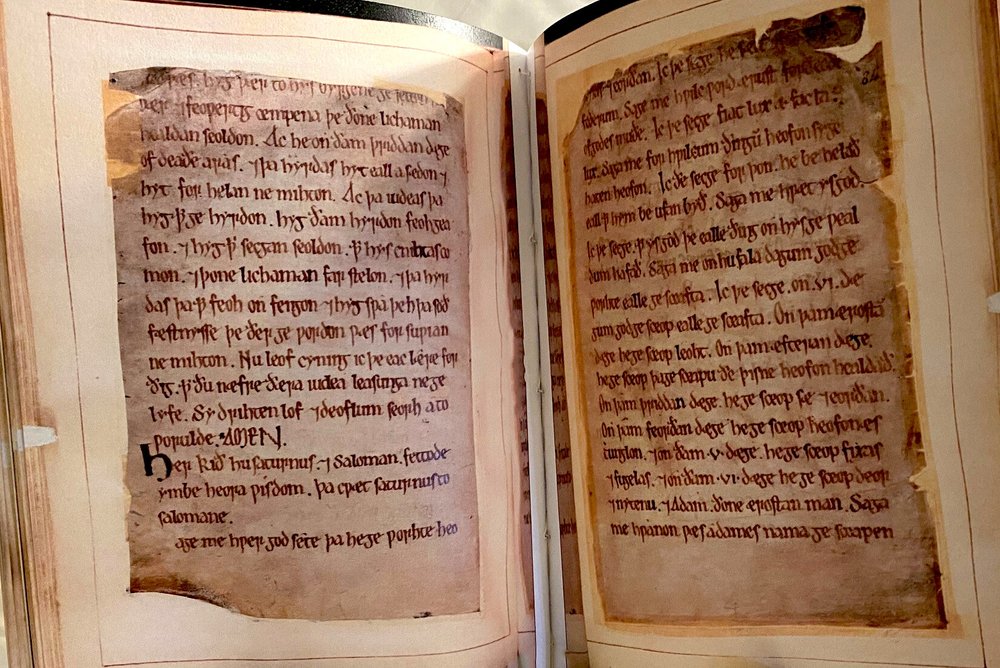 hyg þær to hys byrgene ge setton
þær ⁊ feoƿertig cempena þe ðone lichaman
healdan scoldon. Ac he on ðam þriddan dæge
of deaðe aras. ⁊ þa hyrdas hyt eall asedon ⁊
hyt for helan ne mihton. Ac þa iudeas þa
hyg ꝥ ge hyrdon. hyg ðam hyrdon feoh gea
fon. ⁊ hyg ꝥ secgan scoldon. ꝥ hys cnihtas co
mon. ⁊ þone lichaman for stelon. ⁊ þa hyr
das þa ꝥ feoh on fengon ⁊ hyg sƿa þeh þa soð
fæstnysse þe ðær ge ƿorden ƿæs for suƿian
ne mihton. Nu leof cyning ic þe eac lære for
ðig. ꝥ ðu næfre ðæra iudea leasunga ne ge
lyfe. Sy drihten lof ⁊ deoflum seorh a to
ƿorulde. AMEN.
Her kið hu saturnus. ⁊ saloman. fettode
ymbe heora ƿisdom. þa cƿæt saturnus to
salomane.
age me hƿer god sete þa he ge ƿorhte heo
⁊ eorðan. Ic þe secge he se
federum. Sage me hƿilc ƿord ærust forðeode
of godes muðe. Ic þe secge fiat lux æ facta
lux. Saga me for hƿilcum ðingum heofon syge
haten heofon. Ic ðe secge for þon. he be helað
eall ꝥ hym be ufan byð. Saga me hƿæt ys god.
Ic þe secge. ꝥ ys god þe ealle ðing on hys ge ƿeal
dum hafað. Saga me on hu fala dagum god ge
ƿorhte ealle ge sceafta. Ic þe secge. on .VI. da
gum god ge sceop ealle ge sceafta. On þam ærostan
dæge he ge sceop leoht. On þam æfteran dæge.
he ge sceop þa ge sceapu ðe þisne heofon healdað.
On þam þriddan dæge. he ge sceop sæ ⁊ eorðan.
On þam feorðan dæge he ge sceop heofonæs
tunglon. ⁊ on ðam .V. dæge. he ge sceop fixas
⁊ fugelas. ⁊ on ðam .VI. dæge he ge sceop deor
⁊ nytenu. ⁊ Adam. ðone ærostan man. Saga
me hƿanon ƿes adames nama ge sceapen